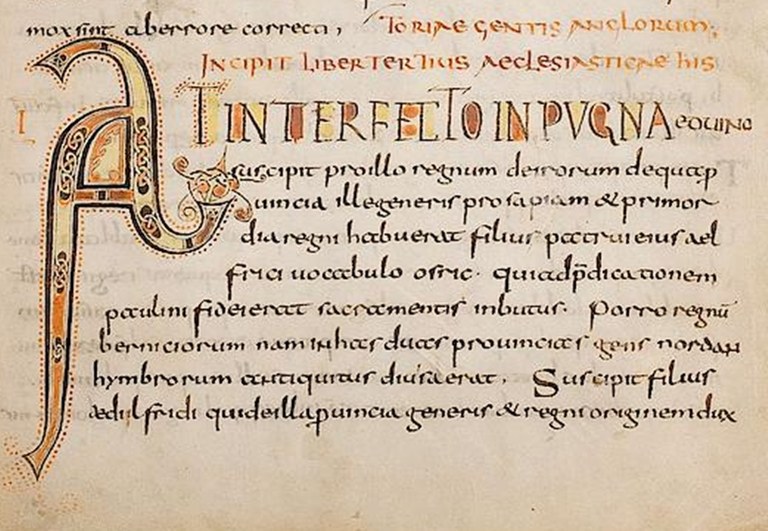 mox sint aberrore correcti, TORIAE GENTIS ANGLORUM;
INCIPIT LIBER TERTIUS AECLESIASTICAE HIS
I
AT INTERFECTO IN PUGNA EDUINO
suscipit proillo regnum deirorum dequap̱
uincia illegeneris prosapiam & primor
dia regni habuerat filius patrui eius ael
frici uocabulo osric. quiadp̄dicationem
paulini fidei erat sacramentis inbutus. Porro regnū
berniciorum nam in has duas prouincias gens nordan
hymbrorum antiquitus diuisa erat. Suscipit filius
aedilfridi quideillap̱uincia generis & regni originem dux